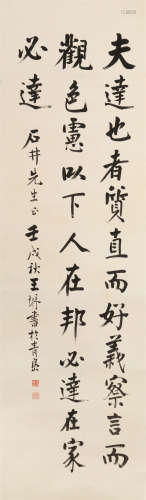 夫達也者質直而好義察言而
觀色慮以下人在邦必達在家
必達 石井先生正 壬戌秋王垿書於青島